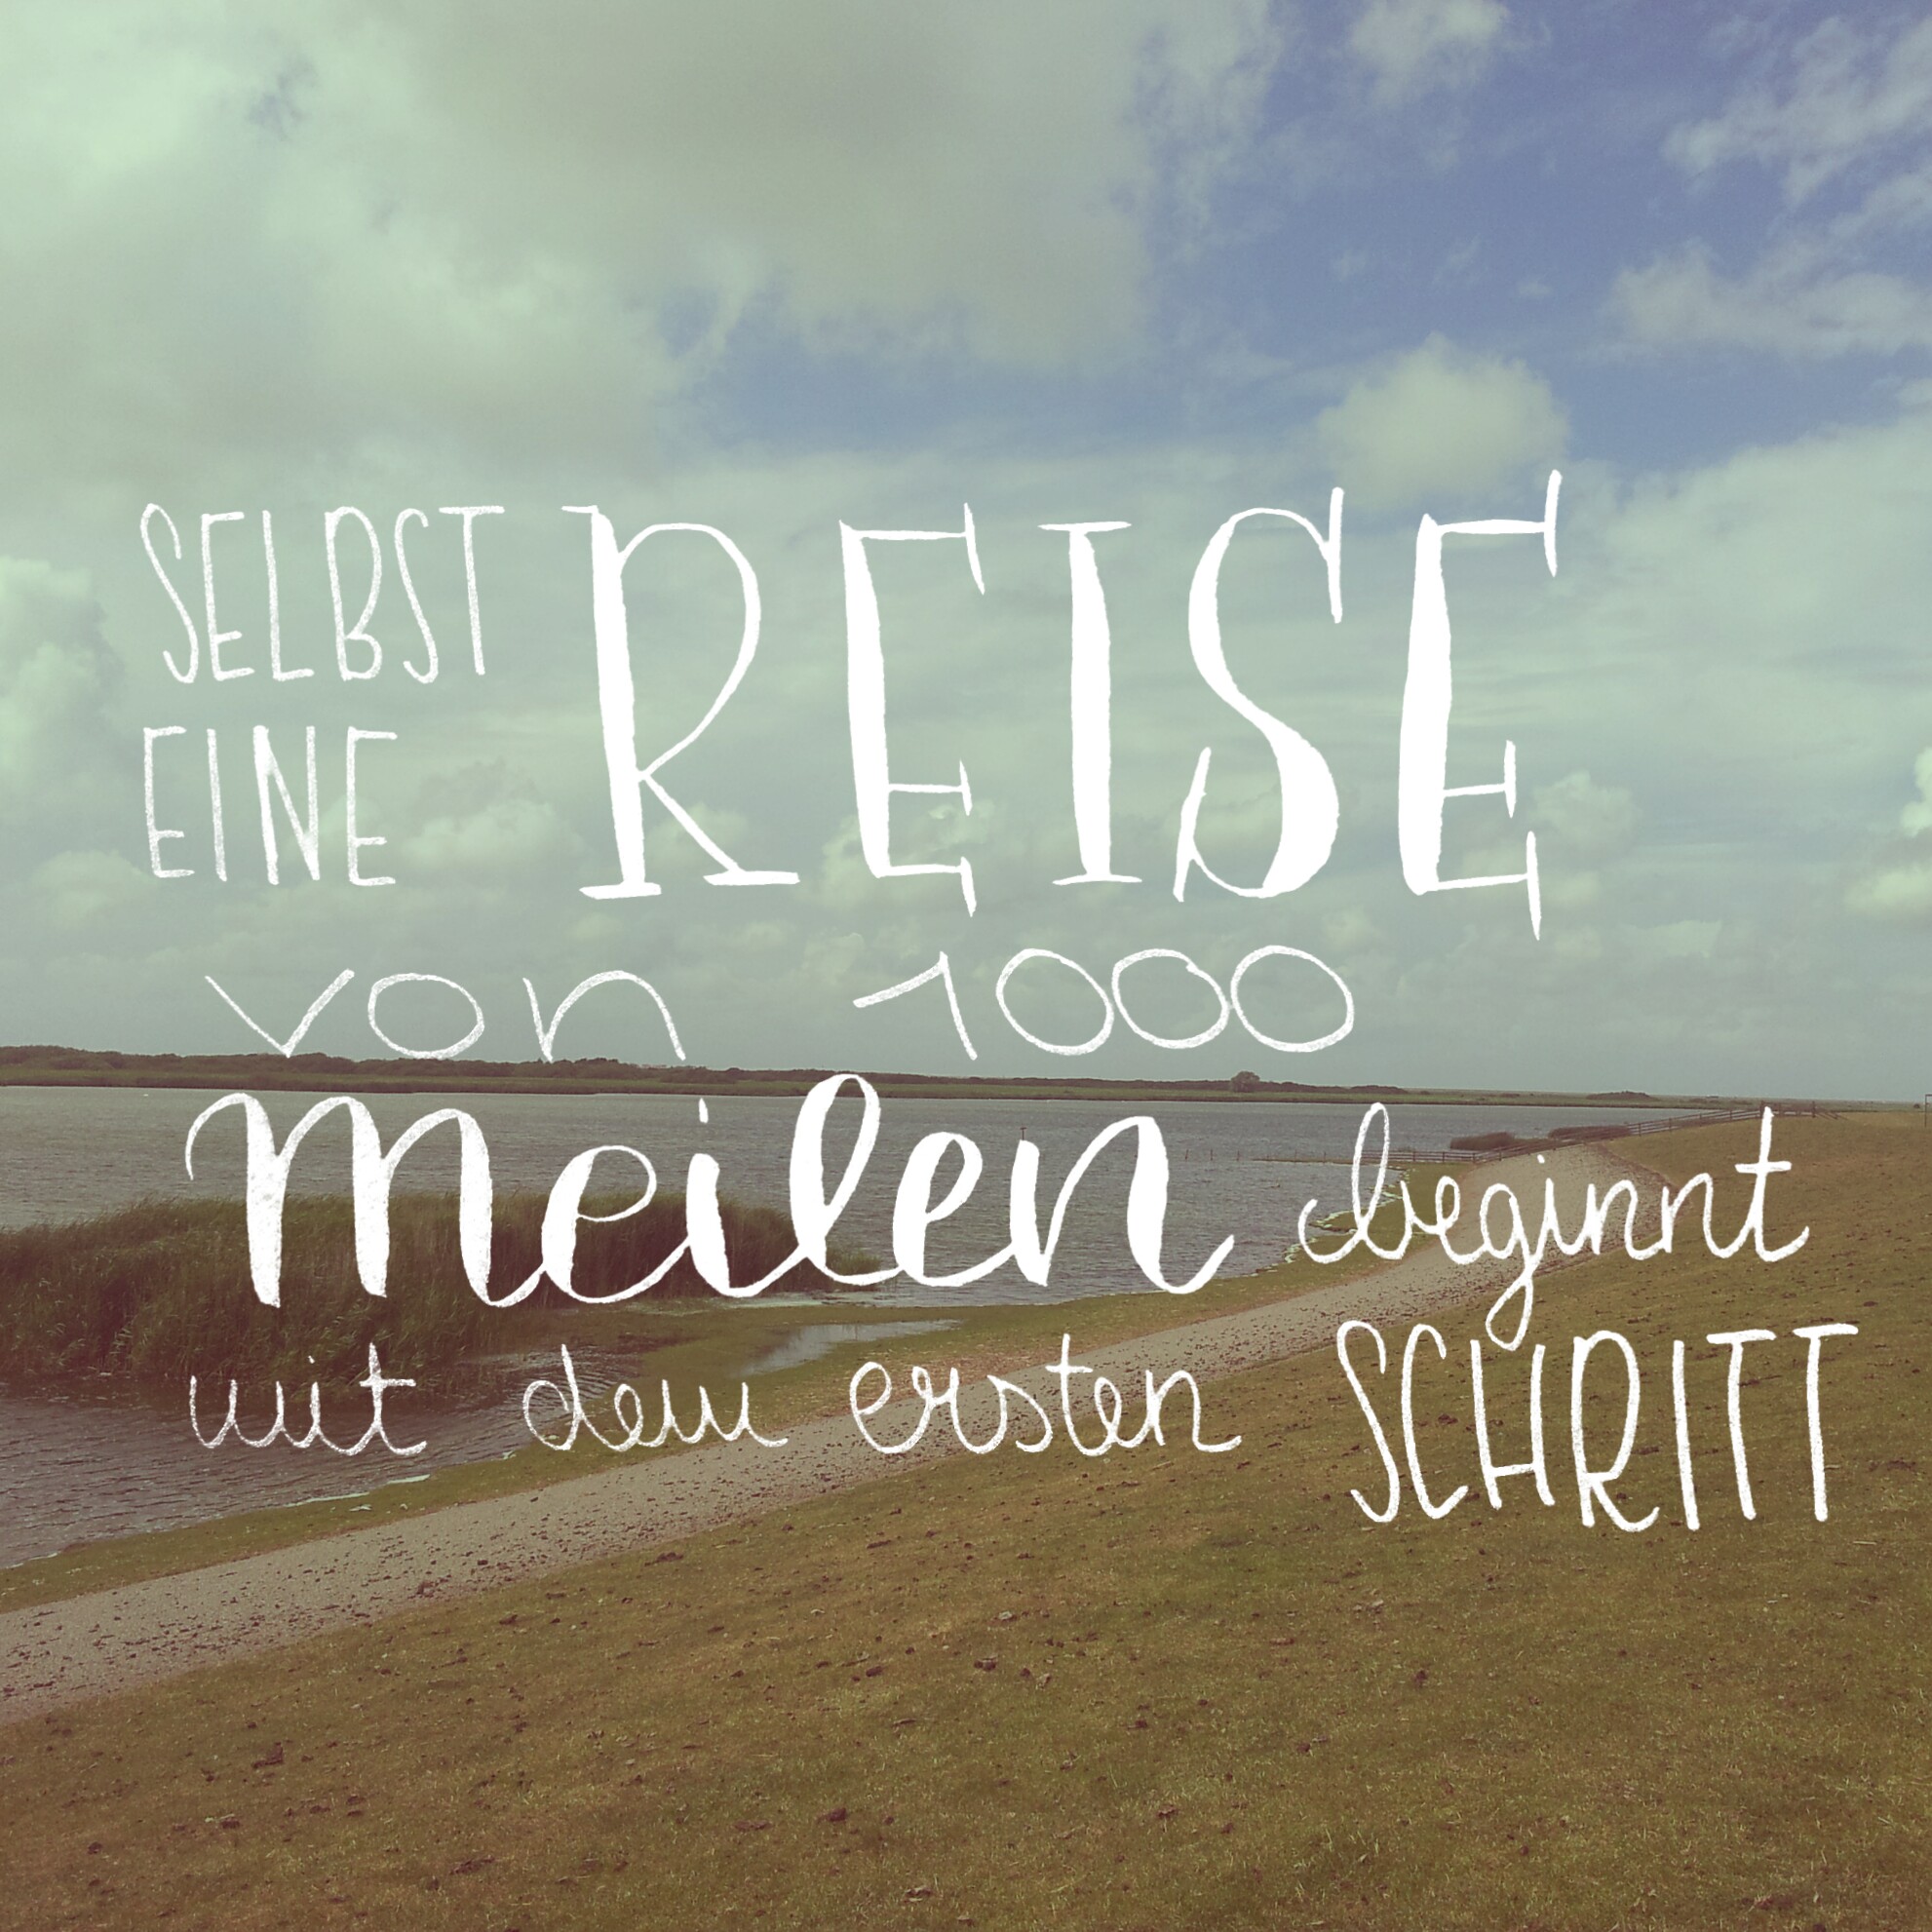 SELBST
EINE REISE
von 1000
Meilen beginnt
mit dem ersten SCHRITT